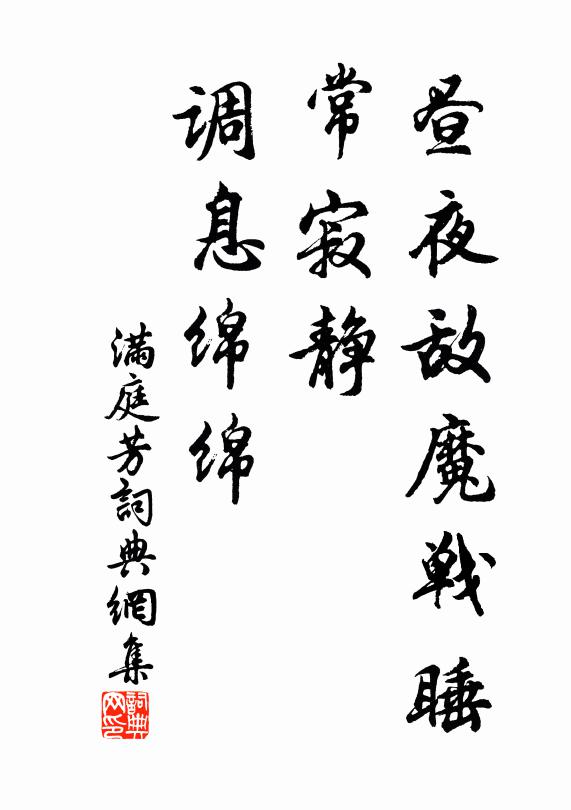 昼夜敌魔战睡
常寂静
调息绵绵
满庭芳詞典網集
詞典
网印